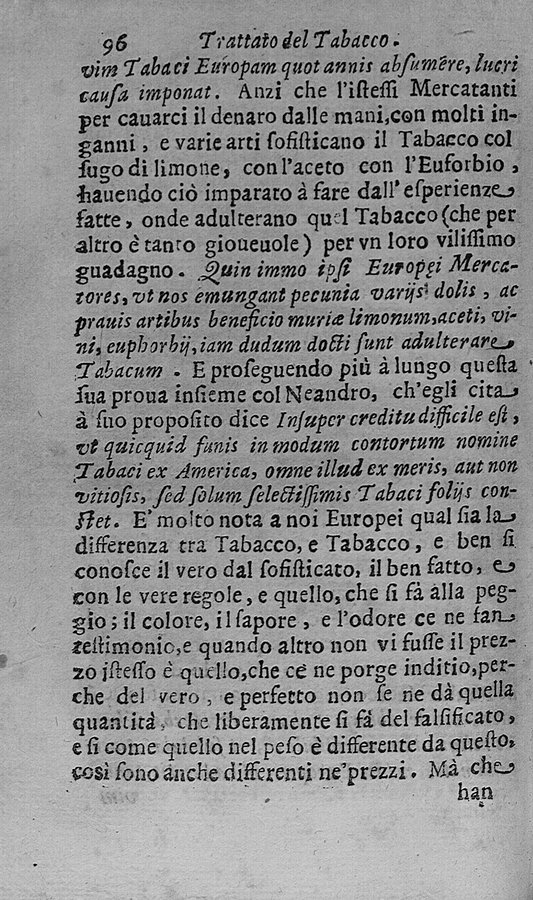 96 Trattato del Tabacco.
vim Tabaci Europam quot annis abſumēre, lucri
cauſa imponat. Anzi che l'iſteſſi Mercatanti
per cauarci il denaro dalle mani, con molti in-
ganni, e varie arti ſofiſticano il Tabacco col
ſugo di limone, con l'aceto con l'Euforbio,
hauendo ciò imparato à fare dall'eſperienze
fatte, onde adulterano quel Tabacco (che per
altro è tanto gioueuole) per vn loro viliſſimo
guadagno. Quin immo ipſi Europęi Merca-
tores, vt nos emungant pecunia varijs dolis, ac
prauis artibus beneficio muriæ limonum, aceti, vi-
ni, euphorbij, iam dudum docti ſunt adulterare
Tabacum. E proſeguendo più à lungo queſta
ſua proua inſieme col Neandro, ch'egli cita
à ſuo propoſito dice Inſuper creditu difficile eſt,
vt quicquid funis in modum contortum nomine
Tabaci ex America, omne illud ex meris, aut non
vitioſis, ſed ſolum ſelectiſſimis Tabaci folijs con-
ſtet. E' molto nota a noi Europei qual ſia la
differenza tra Tabacco, e Tabacco, e ben ſi
conoſce il vero dal ſofiſticato, il ben fatto, e
con le vere regole, e quello, che ſi fà alla peg-
gio; il colore, il ſapore, e l'odore ce ne fan
teſtimonio, e quando altro non vi fuſſe il prez-
zo iſteſſo è quello, che ce ne porge inditio, per-
che del vero, e perfetto non ſe ne dà quella
quantità, che liberamente ſi fà del falſificato,
e ſi come quello nel peſo è differente da queſto,
così ſono anche differenti ne'prezzi. Mà che
han